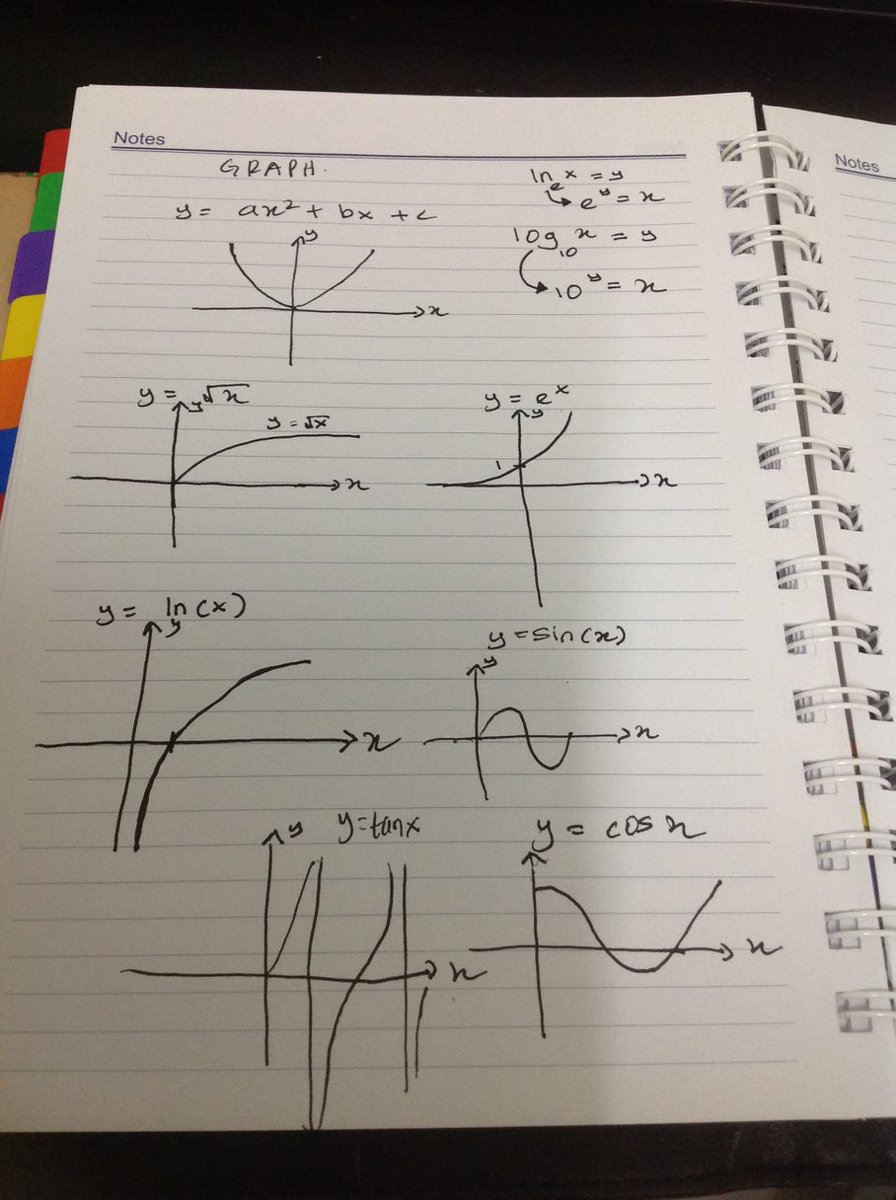 Notes
Notes
GRAPH.
y = ax² + bx + c
y
x
lnₑx = y
e^y = x
log₁₀x = y
10^y = x
y = √x
y
y = √x
x
y = e^x
y
1
x
y = ln(x)
y
x
y = sin(x)
y
x
y = tanx
y
x
y = cos x
x